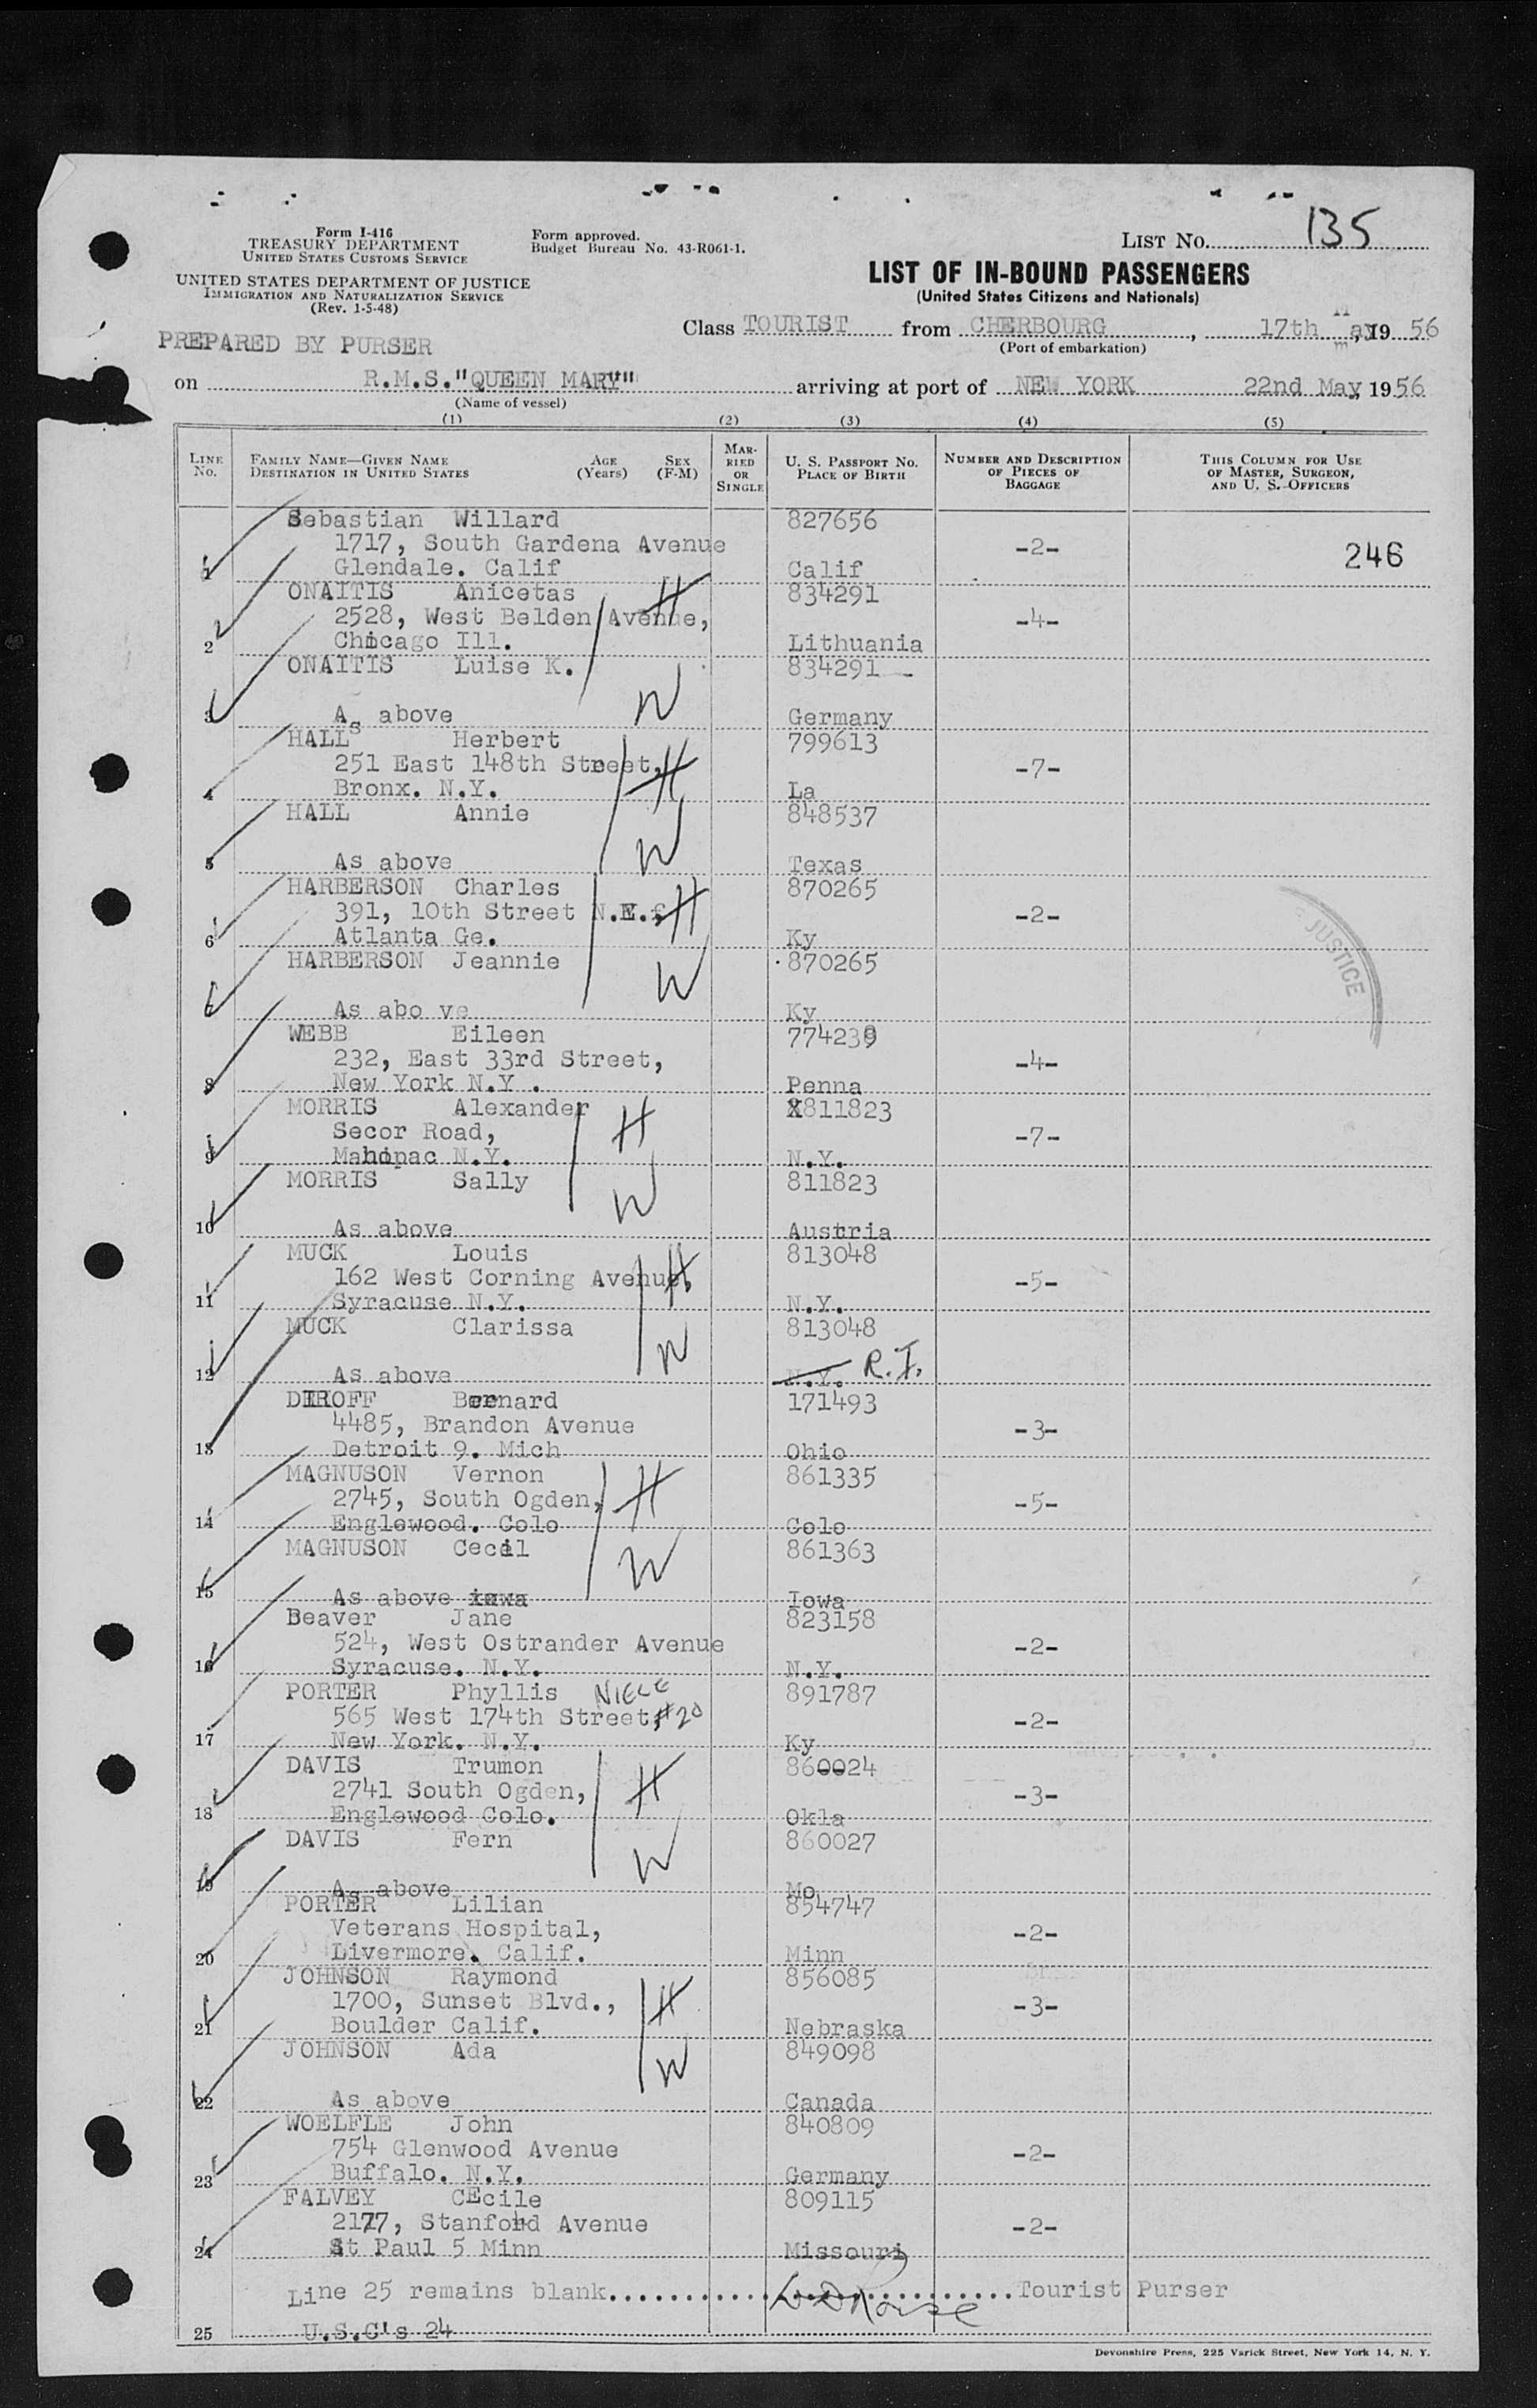 Form I-416
TREASURY DEPARTMENT
UNITED STATES CUSTOMS SERVICE
UNITED STATES DEPARTMENT OF JUSTICE
IMMIGRATION AND NATURALIZATION SERVICE
(Rev. 1-5-48)
PREPARED BY PURSER
Form approved.
Budget Bureau No. 43-R061-1.
LIST NO. 135
LIST OF IN-BOUND PASSENGERS
(United States Citizens and Nationals)
Class TOURIST from CHERBOURG, 17th May 19 56
(Port of embarkation)
on R.M.S."QUEEN MARY" arriving at port of NEW YORK 22nd May, 19 56
(Name of vessel)
(1) (2) (3) (4) (5)
LINE NO. FAMILY NAME—GIVEN NAME DESTINATION IN UNITED STATES AGE (Years) SEX (F-M) MARRIED OR SINGLE U. S. PASSPORT NO. PLACE OF BIRTH NUMBER AND DESCRIPTION OF PIECES OF BAGGAGE THIS COLUMN FOR USE OF MASTER, SURGEON, AND U. S. OFFICERS
Sebastian Willard 827656
1717, South Gardena Avenue -2- 246
1 Glendale. Calif Calif
ONAITIS Anicetas H 834291
2528, West Belden Avenue, -4-
2 Chicago Ill. Lithuania
ONAITIS Luise K. W 834291
3 As above Germany
HALL Herbert 799613
251 East 148th Street, H -7-
4 Bronx. N.Y. La
HALL Annie 848537
5 As above W Texas
HARBERSON Charles 870265
391, 10th Street N.E., H -2-
6 Atlanta Ge. Ky
HARBERSON Jeannie W 870265
7 As abo ve Ky
WEBB Eileen 774239
232, East 33rd Street, -4-
8 New York N.Y . Penna
MORRIS Alexander H 811823
Secor Road, -7-
9 Mahopac N.Y. N.Y.
MORRIS Sally W 811823
10 As above Austria
MUCK Louis 813048
162 West Corning Avenue, H -5-
11 Syracuse N.Y. N.Y.
MUCK Clarissa W 813048
12 As above N.Y. R.I.
DIROFF Bernard 171493
4485, Brandon Avenue -3-
13 Detroit 9. Mich Ohio
MAGNUSON Vernon H 861335
2745, South Ogden, -5-
14 Englewood. Colo Colo
MAGNUSON Cecil W 861363
15 As above iowa Iowa
Beaver Jane 823158
524, West Ostrander Avenue -2-
16 Syracuse. N.Y. N.Y.
PORTER Phyllis NIECE 891787
565 West 174th Street, #20 -2-
17 New York. N.Y. Ky
DAVIS Trumon H 860024
2741 South Ogden, -3-
18 Englewood Colo. Okla
DAVIS Fern W 860027
19 As above Mo
PORTER Lilian 854747
Veterans Hospital, -2-
20 Livermore. Calif. Minn
JOHNSON Raymond H 856085
1700, Sunset Blvd., -3-
21 Boulder Calif. Nebraska
JOHNSON Ada W 849098
22 As above Canada
WOELFLE John 840809
754 Glenwood Avenue -2-
23 Buffalo. N.Y. Germany
FALVEY CEcile 809115
2177, Stanford Avenue -2-
24 St Paul 5 Minn Missouri
JUSTICE
Line 25 remains blank.............................Tourist Purser
25 U.S.C's 24
Devonshire Press, 225 Varick Street, New York 14, N. Y.